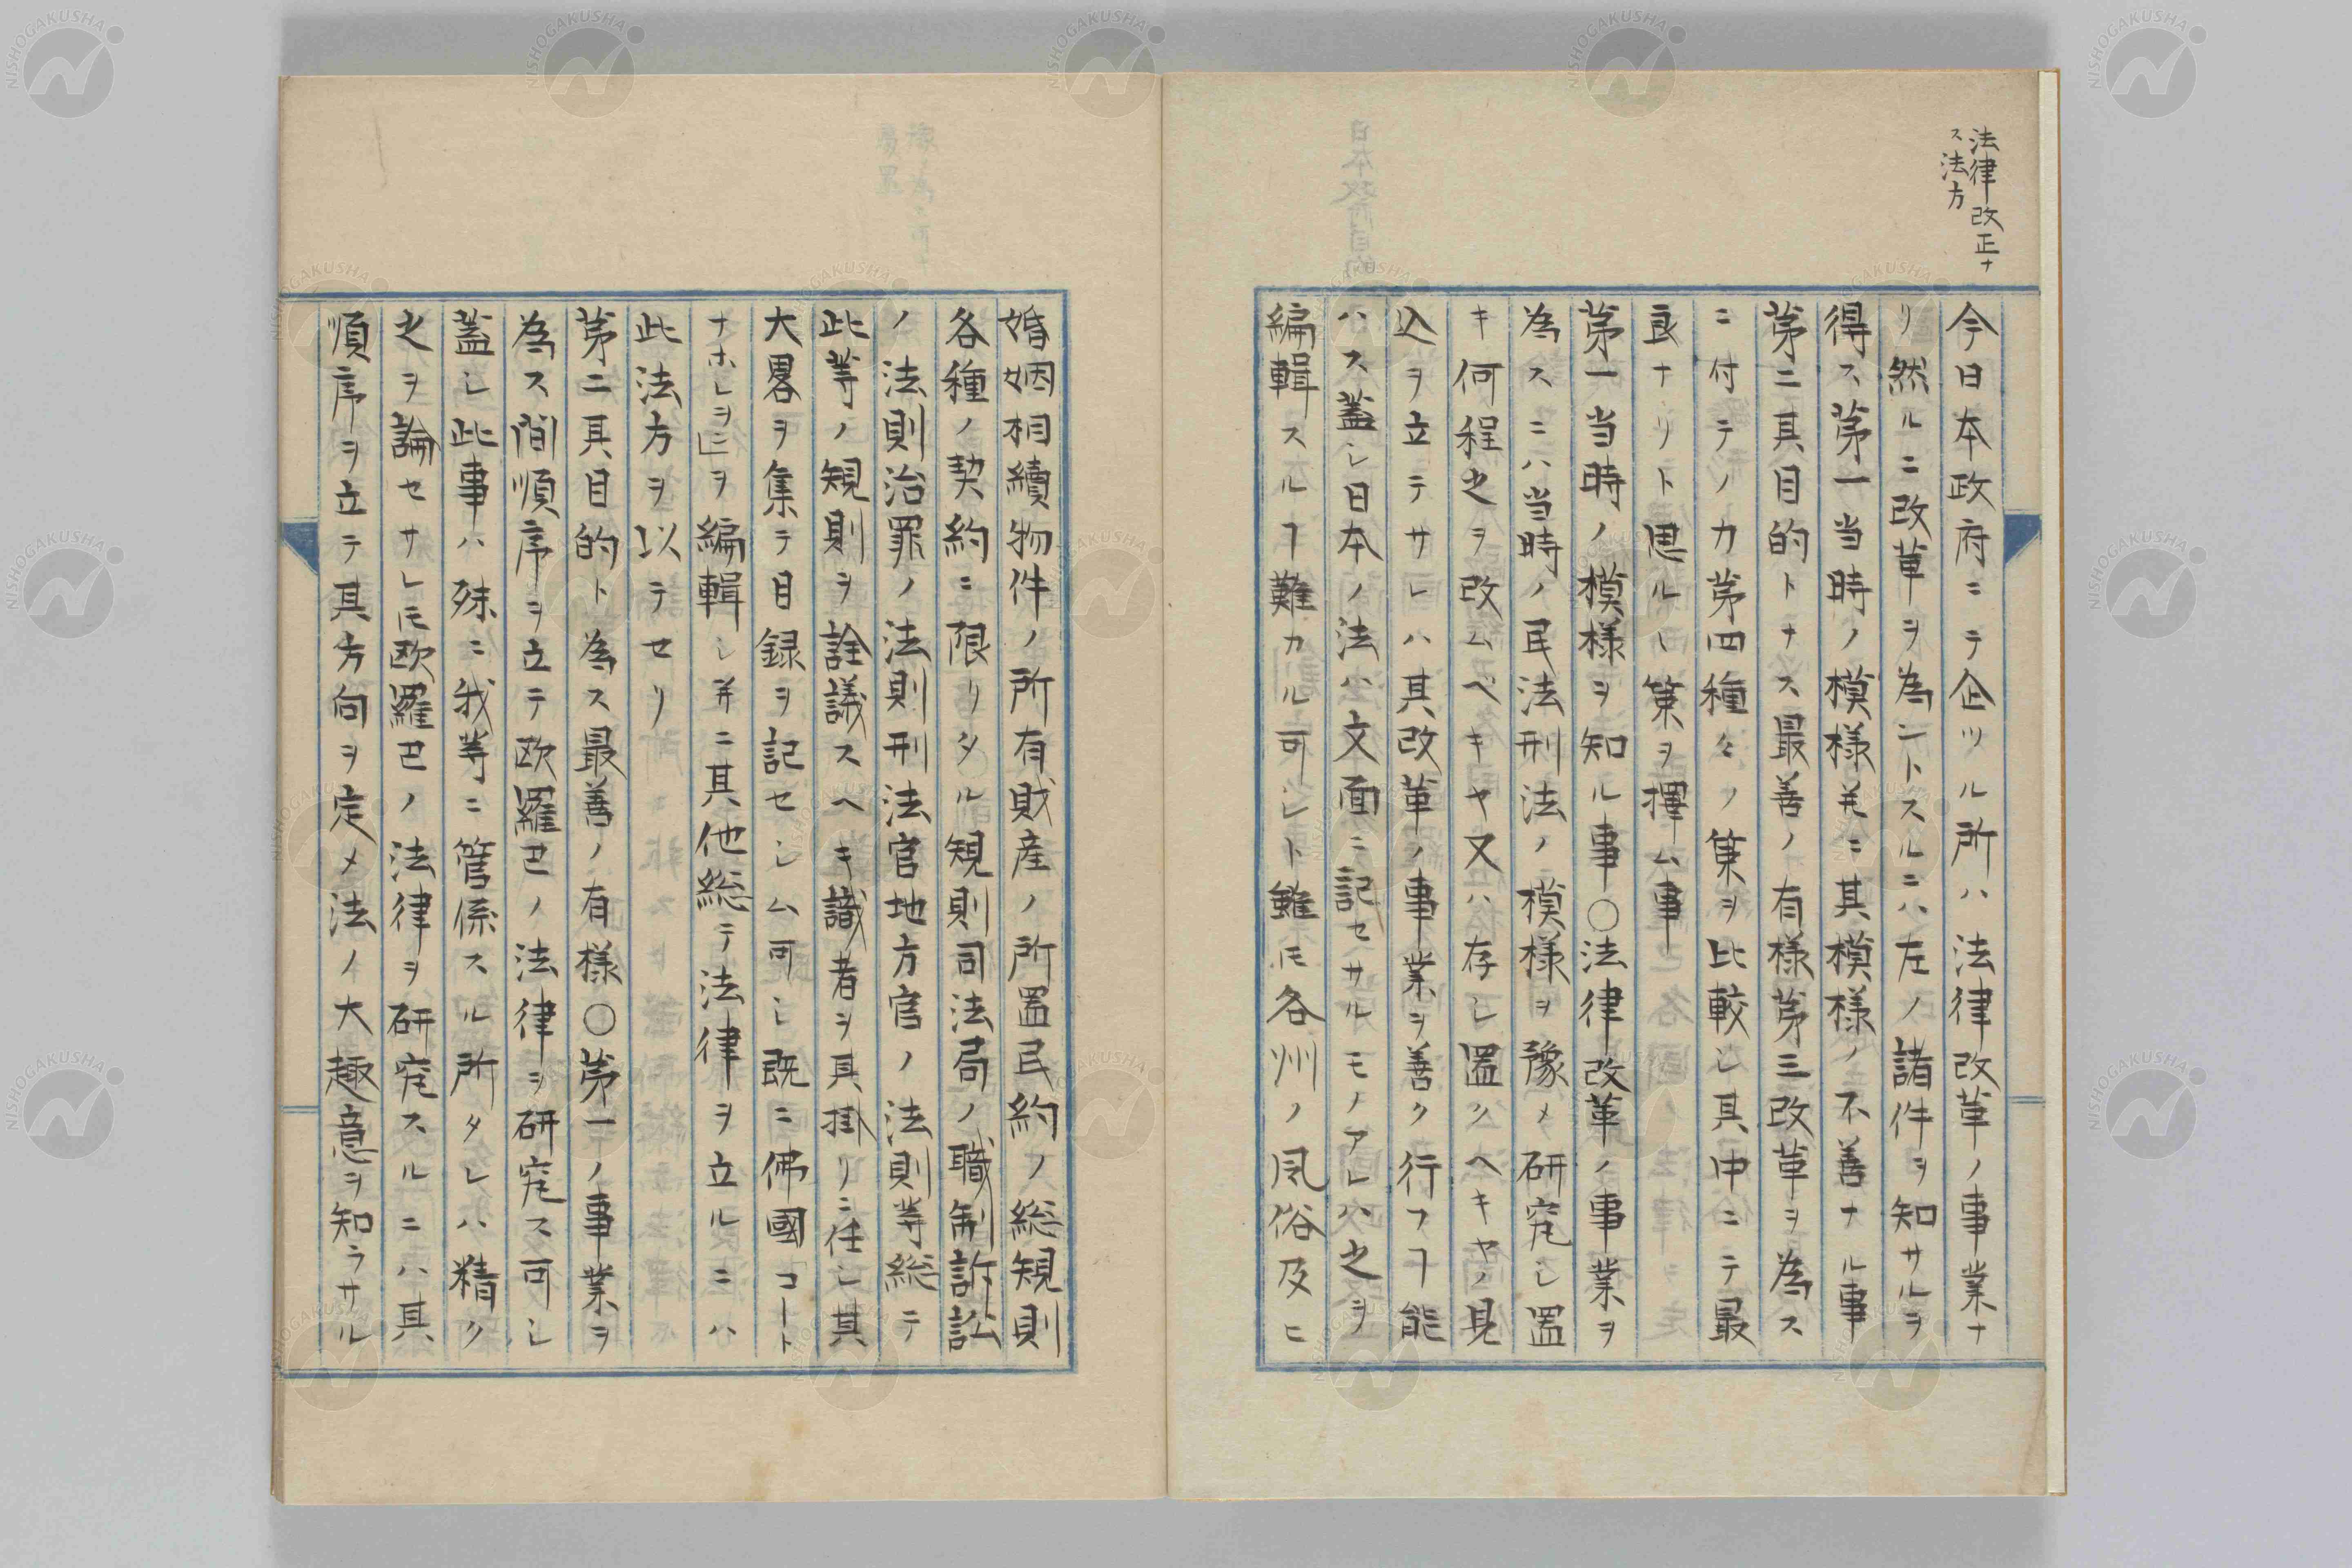 法律改正ナ
ス法方
今日本政府ニテ企ツル所ハ法律改革ノ事業ナ
リ然ルニ改革ヲ為ントスルニハ左ノ諸件ヲ知サルヲ
得ス第一当時ノ模様并ニ其模様ノ不善ナル事
第二其目的トナス最善ノ有様第三改革ヲ為ス
ニ付テノカ第四種々ノ策ヲ比較シ其中ニテ最
良ナリト思ルヽ策ヲ擇ム事
第一当時ノ模様ヲ知ル事〇法律改革ノ事業ヲ
為スニハ当時ノ民法刑法ノ模様ヲ豫メ研究シ置
キ何程之ヲ改ムベキヤ又ハ存シ置クヘキヤノ見
込ヲ立テサレハ其改革ノ事業ヲ善ク行フヿ能
ハス蓋シ日本ノ法ハ文面ニ記セサルモノアレハ之ヲ
編輯スルヿ難カル可シト雖𪜈各州ノ風俗及ヒ
婚姻相續物件ノ所有財産ノ所置民約ノ総規則
各種ノ契約ニ限リタル規則司法局ノ職制訴訟
ノ法則治罪ノ法則刑法官地方官ノ法則等総テ
此等ノ規則ヲ詮議スヘキ識者ヲ其掛リニ任シ其
大畧ヲ集テ目録ヲ記セシム可シ既ニ佛國「コート
ナホレヲン」ヲ編輯シ并ニ其他総テ法律ヲ立ル皆ニハ
此法方ヲ以テセリ
第二其目的ト為ス最善ノ有様〇第一ノ事業ヲ
為ス間順序ヲ立テ欧羅巴ノ法律ヲ研究ス可シ
蓋シ此事ハ殊ニ我等ニ管係スル所タレハ精ク
之ヲ論セサレ𪜈欧羅巴ノ法律ヲ研究スルニハ其
順序ヲ立テ其方向ヲ定メ法ノ大趣意ヲ知ラサル
NISHOGAKUSHA